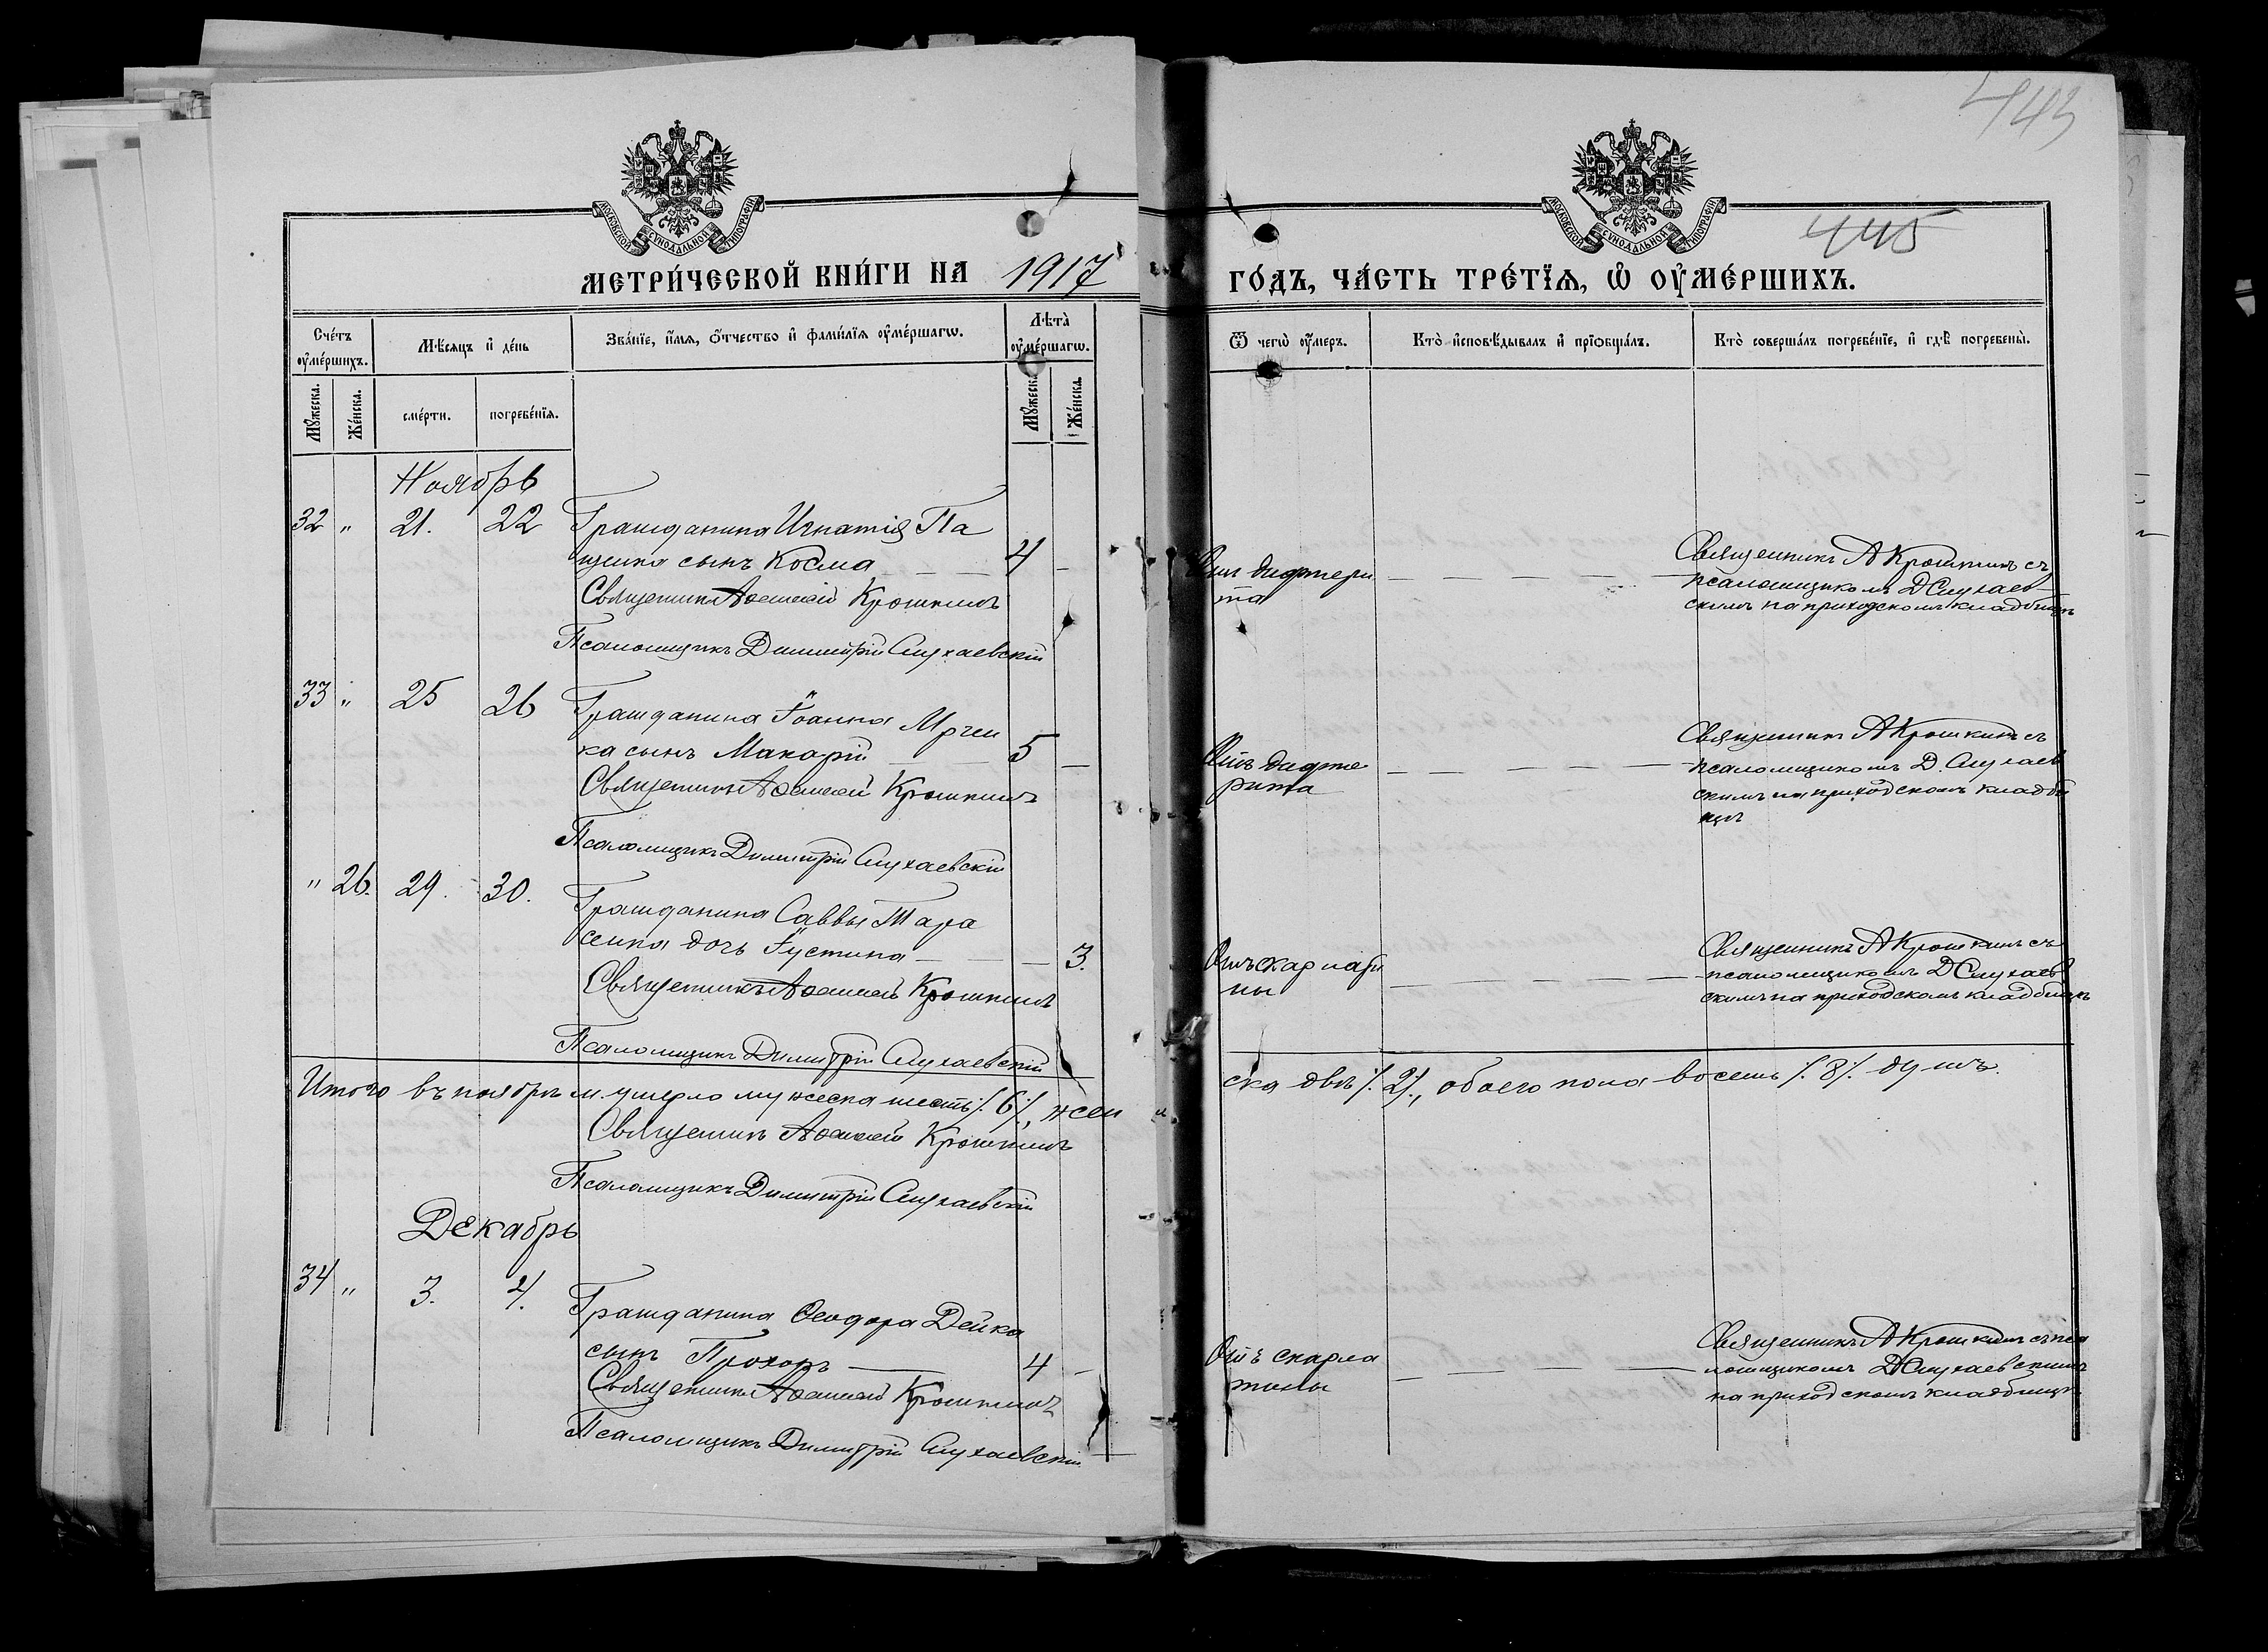 443
445
МОСКОВСКОЙ СѴНОДАЛЬНОЙ ТИПОГРАФІИ
МОСКОВСКОЙ СѴНОДАЛЬНОЙ ТИПОГРАФІИ
МЕТРИ́ЧЕСКОЙ КНИ́ГИ НА 1917
ГО́ДЪ, ЧА́СТЬ ТРЕ́ТЇѦ, Ѡ҆ ОУ҆МЕ́РШИХЪ.
Сче́тъ оу҆ме́ршихъ.
Мѣ́сѧцъ и҆ де́нь
Зва́нїе, и҆́мѧ, ѻ҆́тчество и҆ фами́лїѧ оу҆ме́ршагѡ.
Лѣта̀ оу҆ме́ршагѡ.
Ѿ чегѡ̀ оу҆́меръ.
Кто̀ и҆сповѣ́дывалъ и҆ прїѡбща́лъ.
Кто̀ соверша́лъ погребе́нїе, и҆ гдѣ̀ погребены̀.
Мꙋ́жеска.
Же́нска.
сме́рти.
погребе́нїѧ.
Мꙋ́жеска.
Же́нска.
Ноябрь
32 " 21. 22 Гражданина Игнатія Па
щенка сынъ Косма 4
Священникъ Алексій Крошкинъ
Псаломщикъ Димитрій Слухаевскій
Отъ дифтери
та
Священникъ А Крошкинъ съ
псаломщикомъ Д Слухаев
скимъ на приходскомъ кладбищѣ
33 " 25 26 Гражданина Іоанна
ка сынъ Макарій 5
Священникъ Алексій Крошкинъ
Псаломщикъ Димитрій Слухаевскій
Отъ дифте
рита
Священникъ А Крошкинъ съ
псаломщикомъ Д. Слухаев
скимъ на приходскомъ кладби
щѣ
" 26. 29. 30. Гражданина Саввы Тара
сенка дочь Іустина 3.
Священникъ Алексій Крошкинъ
Псаломщикъ Димитрій Слухаевскій
Отъ скарлати
ны
Священникъ А Крошкинъ съ
псаломщикомъ Д Слухаев
скимъ на приходскомъ кладбищѣ
Итого въ ноябрѣ м. умерло мужеска шесть /.6/., жен
ска двѣ /.2/., обоего пола восемь /.8/. душъ.
Священникъ Алексій Крошкинъ
Псаломщикъ Димитрій Слухаевскій
Декабрь
34 " 3. 4. Гражданина Ѳеодора Дейка
сынъ Прохоръ 4
Священникъ Алексій Крошкинъ
Псаломщикъ Димитрій Слухаевскій
Отъ скарла
тины
Священникъ А Крошкинъ съ пса
ломщикомъ Д Слухаевскимъ
на приходскомъ кладбищѣ